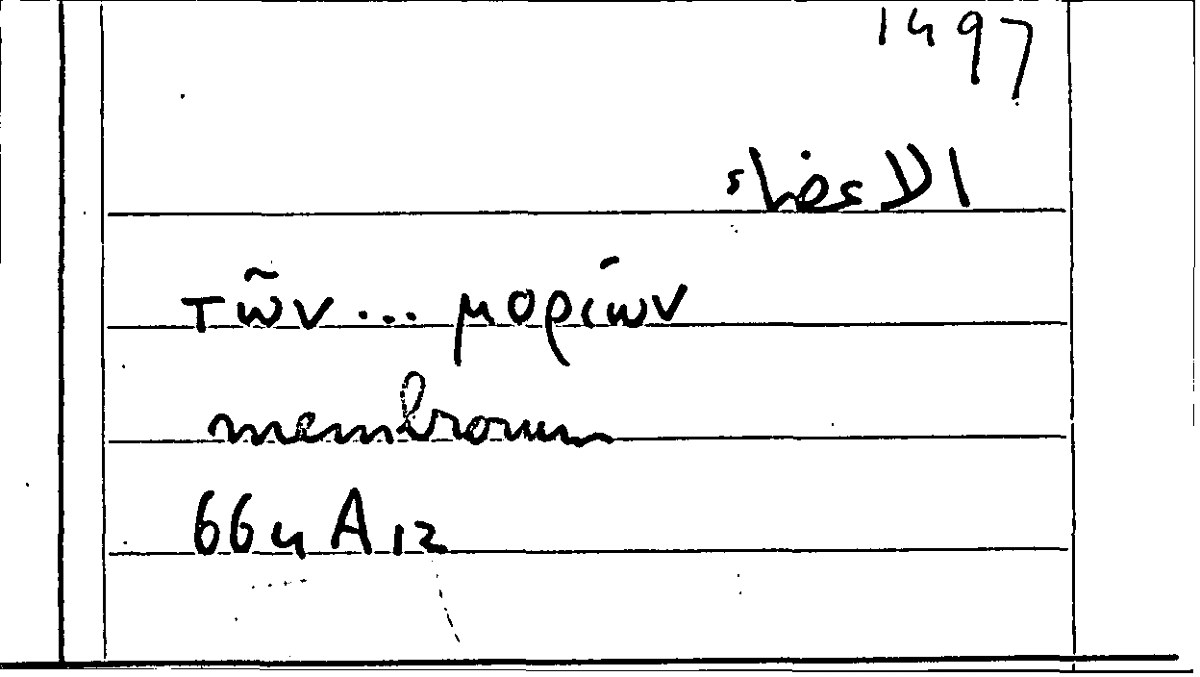 1497
الاعضاء
τῶν ... μορίων
membrorum
664 A 12